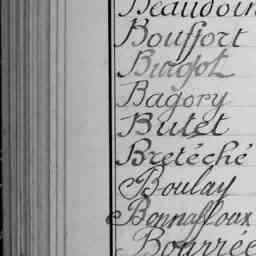 Beaudoin
Bouffort
Burgot
Bagory
Butet
Bretéché
Boulay
Bonnafloux
Bourrée